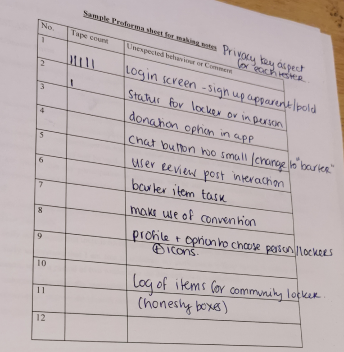 Sample Proforma sheet for making notes
Privacy key aspect
for each tester
No. Tape count Unexpected behaviour or Comment
1
2 Login screen - sign up apparent/bold
3 Status for locker or in person
4 donation option in app
5 chat button too small/change to "barter"
6 User review post interaction
7 barter item task
8 make use of convention
9 profile + option to choose person/lockers
+ icons.
10
11 Log of items for community locker
(honesty boxes)
12